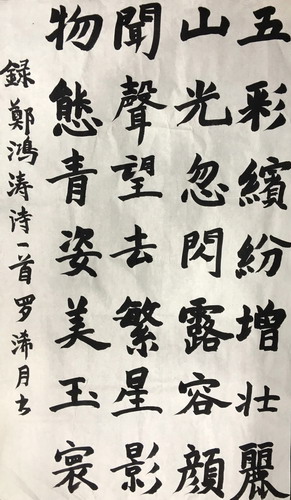 五彩繽紛增壯麗
山光忽閃露容顔
聞聲望去繁星影
物態青姿美玉寰
録鄭鴻涛诗一首罗浠月书